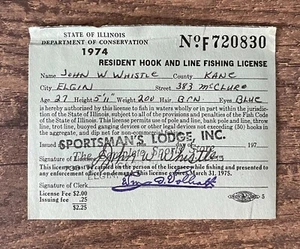 STATE OF ILLINOIS
DEPARTMENT OF CONSERVATION
1974
NºF 720830
RESIDENT HOOK AND LINE FISHING LICENSE
Name JOHN W WHISTLE County KANE
City ELGIN Street 383 McCLURE
Age 27 Height 5'11" Weight 200 Hair BRN Eyes BLUE
is hereby authorized by this license to fish in waters wholly or in part within the jurisdiction
of the State, subject to all of the provisions and penalties of the Fish Code
of the State of Illinois. This license permits use of pole and line, bank pole and line, throw
line, trot line, buoyed ganging devices or other legal devices not exceeding (50) hooks in
the aggregate, and dip net for non-commercial
SPORTSMAN'S LODGE, INC.
197
ELGIN
This license must be carried on the person of the licensee while fishing and presented to
any enforcement officer on demand. This license expires March 31, 1975.
Signature of Clerk
License Fee $2.00
Issuing fee .25
$2.25